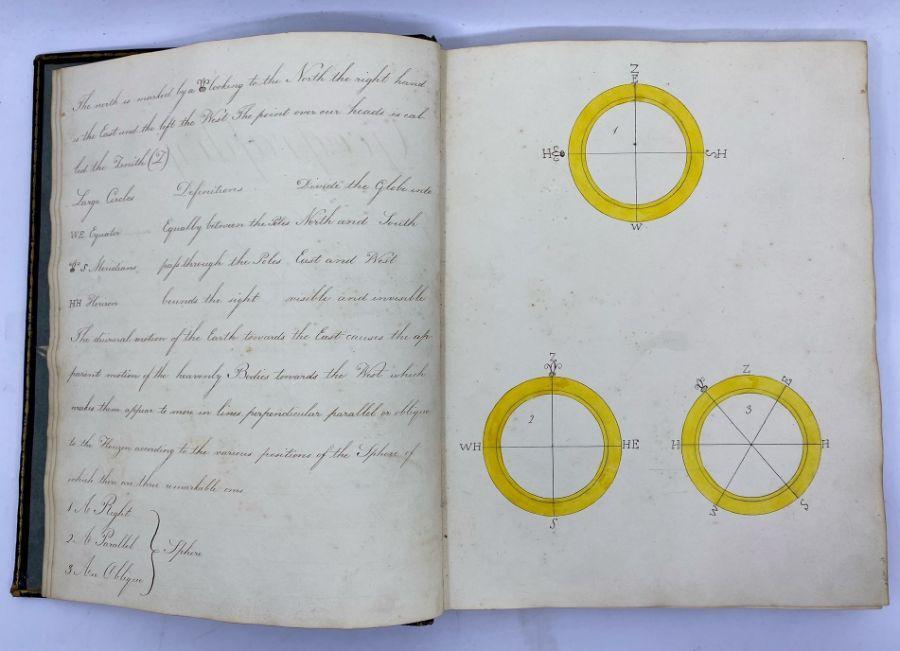 The north is marked by a looking to the North the right hand
is the East and the left the West. The point over our heads is cal
led the Zenith (Z)
Large Circles Definitions Divide the Globe into
WE Equator Equally between the Poles North and South
S Meridians pass through the Poles East and West
HH Horizon bounds the sight visible and invisible
The diurnal motion of the Earth towards the East causes the ap
parent motion of the heavenly Bodies towards the West which
makes them appear to move in lines perpendicular parallel or oblique
to the Horizon according to the various positions of the Sphere of
which there are three remarkable ones
1 A Right
2 A Parallel } Sphere
3 An Oblique
Z
E
1
H SH
W
Z
2
WH HE
S
Z
E
3
H H
W S